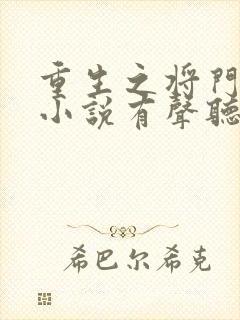 重生之将门
小说有聲聽
希巴尔希克